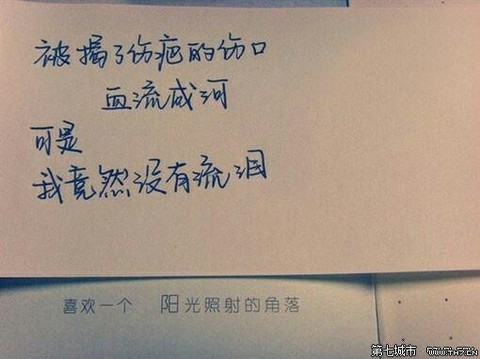 被揭了伤疤的伤口
血流成河
可是
我竟然没有流泪
喜欢一个 阳光照射的角落
第七城市 www.th7.cn